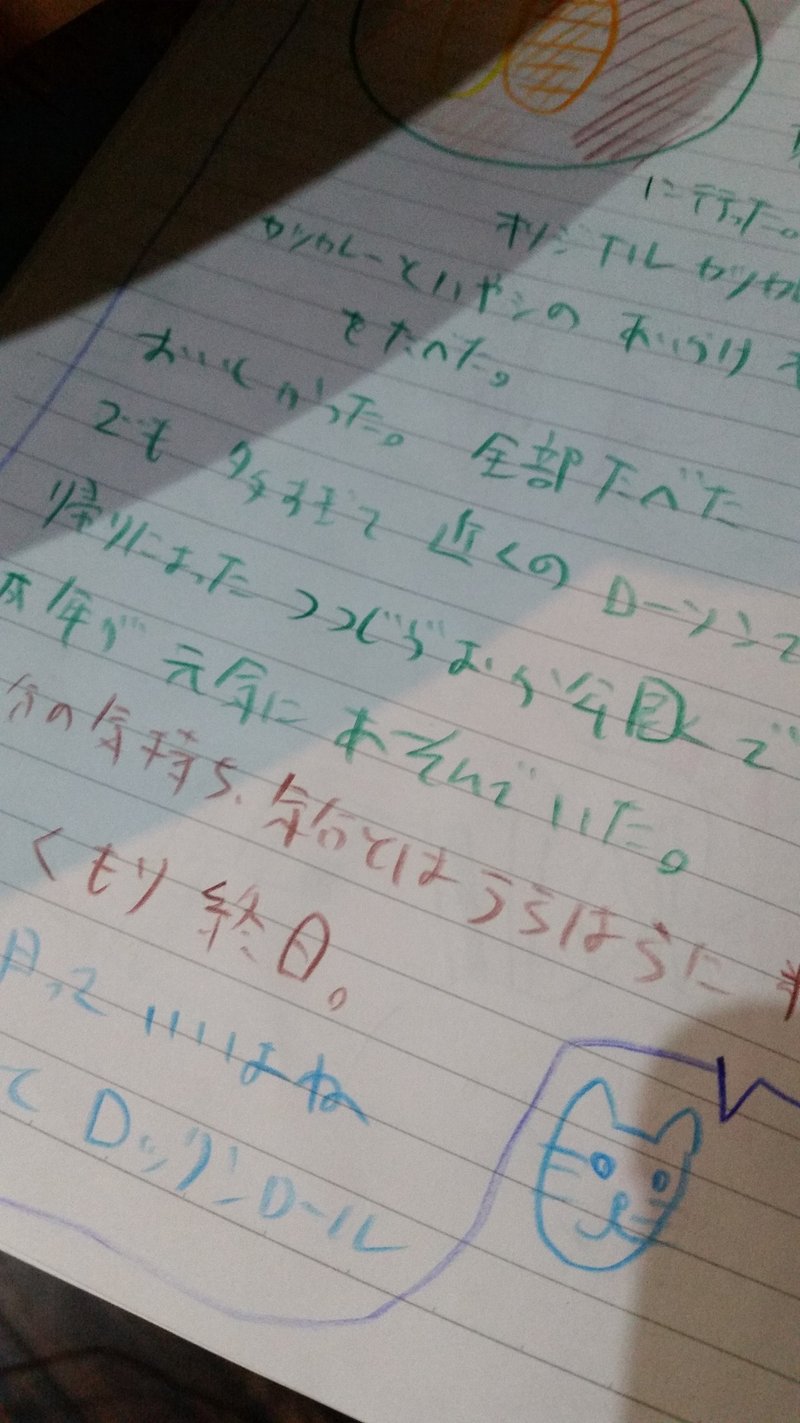 に行った。
オリジナル カツカレ
カツカレーとハヤシの あいがけ
をたべた。
おいしかった。 全部たべた
でも 多すぎて 近くの ローソンで
帰りによった つつじがおか公園 で
年が 元気に あそんでいた。
分の気持ち、気分とはうらはらに
くもり 終日。
月って いいはね
て ロックンロール